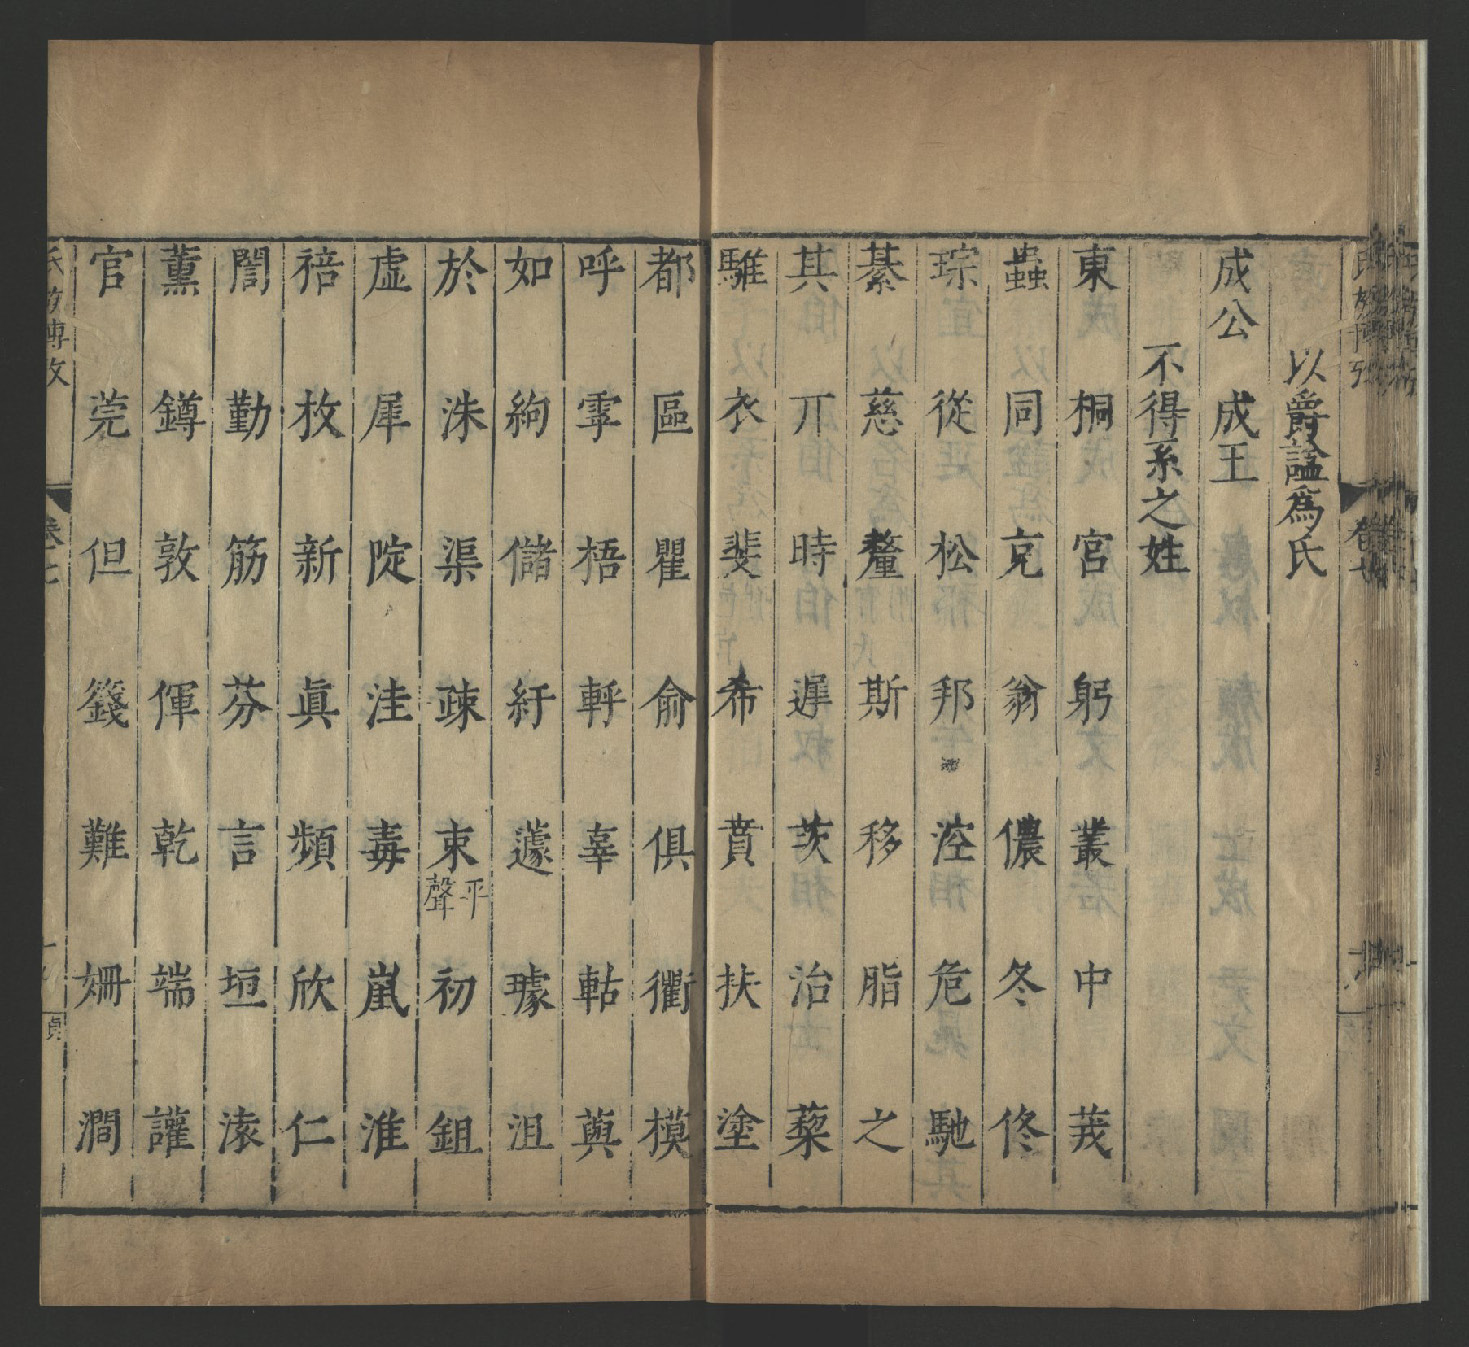 以爵諡爲氏
成公 成王
不得系之姓
東 桐 宮 躬 叢 中 茙
蟲 同 克 翁 儂 冬 佟
琮 從 松 邦 涳 危 馳
綦 慈 釐 斯 移 脂 之
其 丌 時 遲 茨 治 蔾
騅 衣 斐 希 賁 扶 塗
都 區 瞿 俞 俱 衢 模
呼 雽 梧 軤 辜 軲 䓊
如 絇 儲 紆 蘧 璩 沮
於 洙 渠 疎 束平聲 初 鉏
虛 犀 洼 毒 嵐 淮
枚 新 眞 頻 欣 仁
誾 勤 筋 芬 言 垣 㵀
薫 鐏 敦 僤 乾 端 讙
官 莞 但 籛 難 姍 澗